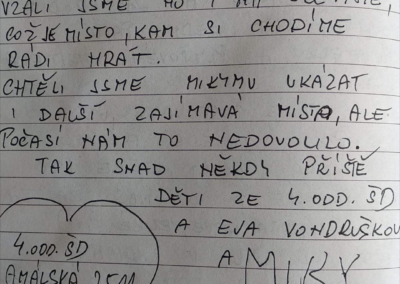 VZALI JSME HO I
COŽ JE MÍSTO, KAM SI CHODÍME
RÁDI HRÁT.
CHTĚLI JSME MIKYMU UKÁZAT
I DALŠÍ ZAJÍMAVÁ MÍSTA, ALE
POČASÍ NÁM TO NEDOVOLILO.
TAK SNAD NĚKDY PŘÍŠTĚ
DĚTI ZE 4.ODD. ŠD
A EVA VONDRUŠKOV
A MIKY
4.ODD. ŠD
AMÁLSKÁ 2511